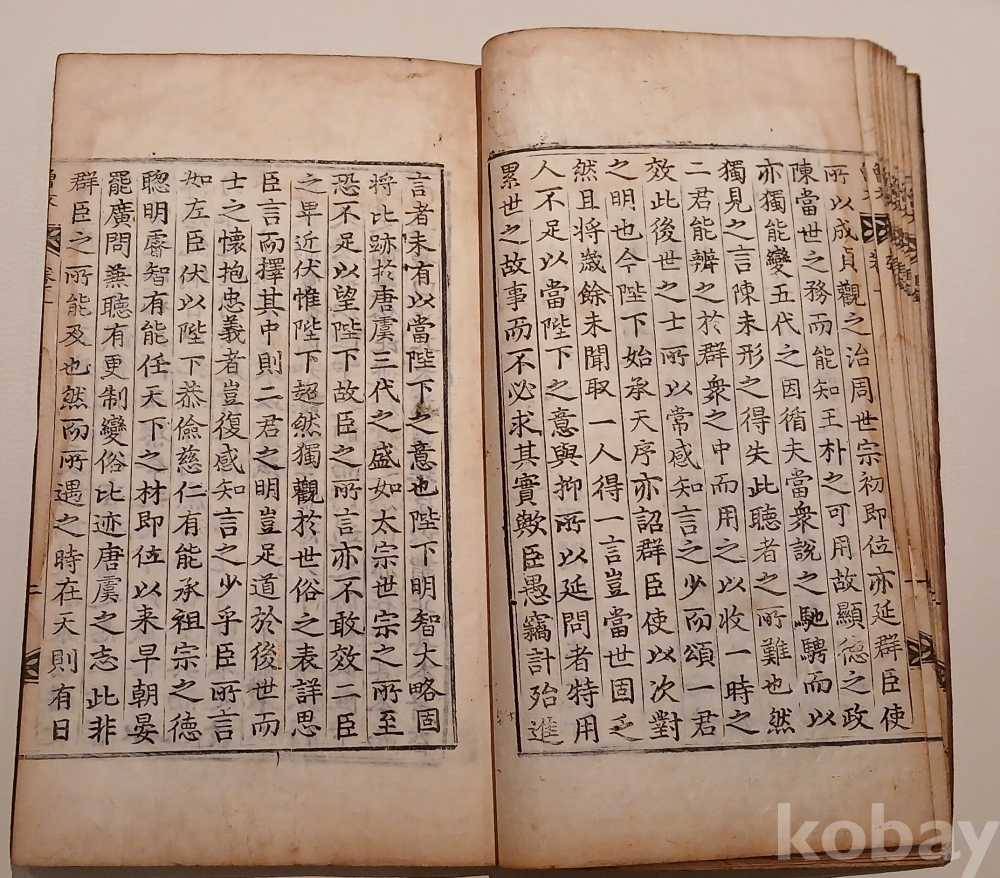 所以成貞觀之治周世宗初即位亦延群臣使
陳當世之務而能知王朴之可用故顯德之政
亦獨能變五代之因循夫當衆說之馳騁而以
獨見之言陳未形之得失此聽者之所難也然
二君能辨之於群衆之中而用之以收一時之
效此後世之士所以常感知言之少而頌一君
之明也今陛下始承天序亦詔群臣使以次對
然且將歲餘未聞取一人得一言豈當世固乏
人不足以當陛下之意與抑所以延問者特用
累世之故事而不必求其實歟臣愚竊計殆進
言者未有以當陛下之意也陛下明智大略固
將比跡於唐虞三代之盛如太宗世宗之所至
恐不足以望陛下故臣之所言亦不敢效二臣
之卑近伏惟陛下超然獨觀於世俗之表詳思
臣言而擇其中則二君之明豈足道於後世而
士之懷抱忠義者豈復感知言之少乎臣所言
如左臣伏以陛下恭儉慈仁有能承祖宗之德
聰明睿智有能任天下之材即位以来早朝晏
罷廣問兼聽有更制變俗比迹唐虞之志此非
群臣之所能及也然而所遇之時在天則有日
kobay